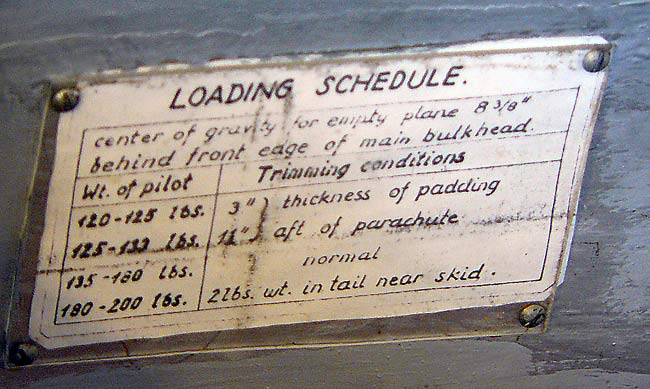 LOADING SCHEDULE.
center of gravity for empty plane 8 3/8"
behind front edge of main bulkhead.
Wt. of pilot Trimming conditions
120-125 lbs. 3" } thickness of padding
125-133 lbs. 1½" } aft of parachute
135-180 lbs. normal
180-200 lbs. 2 lbs. wt. in tail near skid.